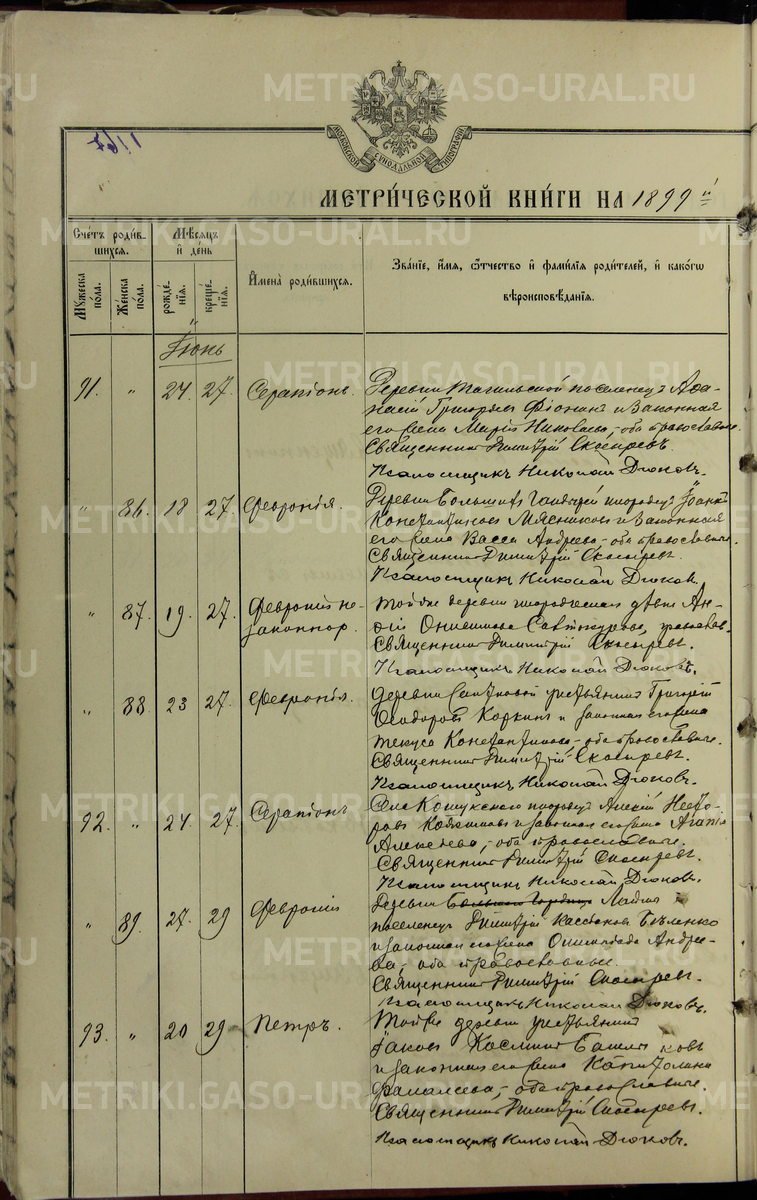 METRIKI.GASO-URAL.RU
МОСКОВСКОЙ СѴНОДАЛЬНОЙ ТИПОГРАФІИ
1167
МЕТРИ́ЧЕСКОЙ КНИ́ГИ НА 1899 г.
Сче́тъ роди́в-
шихся.
Мꙋ́жеска по́ла.
Же́нска по́ла.
Мѣ́сяцъ
и҆ де́нь
рожде́-
нїѧ.
креще́-
нїѧ.
И҆мена̀ роди́вшихся.
Зва́нїе, и҆́мя, ѻ҆́тчество и҆ фами́лїя роди́телей, и҆ како́гѡ
вѣроисповѣ́данїя.
Іюнь
91. " 24. 27. Серапіонъ. Деревни Тагильской поселенецъ Аѳа-
насій Григорьевъ и законная
его жена Марія Николаева, оба православные.
Священникъ Димитрій Скосыревъ.
Псаломщикъ Николай Дюковъ.
" 86. 18 27. Февронія. Деревни инородецъ Іоаннъ
Константиновъ Мясниковъ и законная
его жена Васса Андреева, оба православные.
Священникъ Димитрій Скосыревъ.
Псаломщикъ Николай Дюковъ.
" 87. 19. 27. Февронія не-
законнор. Той же деревни инородческая дѣвица
православ.
Священникъ Димитрій Скосыревъ.
Псаломщикъ Николай Дюковъ.
" 88. 23 27. Февронія. Деревни крестьянинъ Григорій
Ѳеодоровъ Коркинъ и законная его жена
Текуса Константинова, оба православные.
Священникъ Димитрій Скосыревъ.
Псаломщикъ Николай Дюковъ.
92. " 24. 27. Серапіонъ Села Кошукскаго инородецъ Алексій
и законная его жена Агапія
Алексѣева, оба православные.
Священникъ Димитрій Скосыревъ.
Псаломщикъ Николай Дюковъ.
" 89. 27. 29 Февронія Деревни
поселенецъ Димитрій Бѣленко
и законная его жена Андрее-
ва, оба православные.
Священникъ Димитрій Скосыревъ.
Псаломщикъ Николай Дюковъ.
93. " 20 29. Петръ. Той же деревни крестьянинъ
Іаковъ Косминъ
и законная его жена Капитолина
оба православные.
Священникъ Димитрій Скосыревъ.
Псаломщикъ Николай Дюковъ.